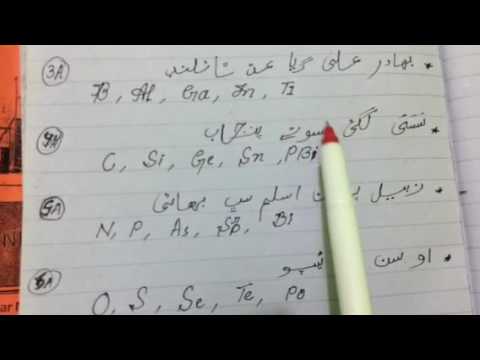 3A
بہادر علی گیا عن تانلینڈ
B, Al, Ga, In, Tl
4A
سوتے پنجاب
C, Si, Ge, Sn, PBi
5A
اسلم سب بھائی
N, P, As, Sb, Bi
6A
او سن پو
O, S, Se, Te, Po